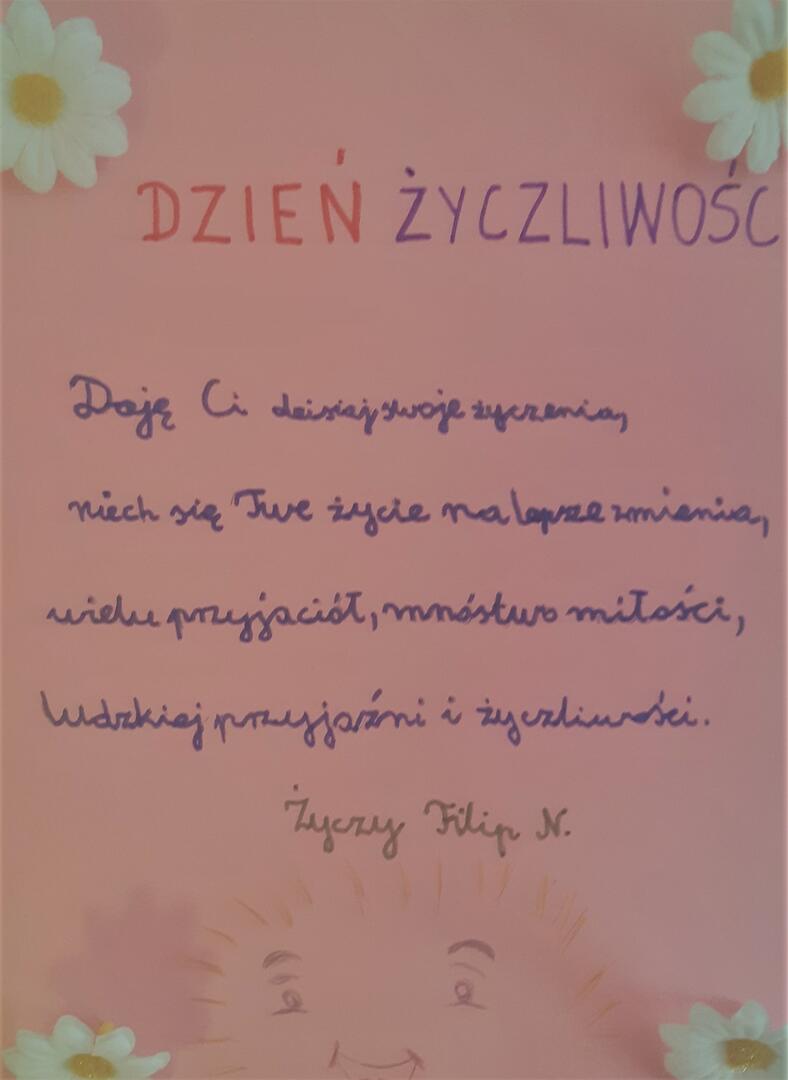 DZIEŃ ŻYCZLIWOŚC
Daję Ci dzisiaj swoje życzenia,
niech się Twe życie na lepsze zmienia,
wielu przyjaciół, mnóstwo miłości,
ludzkiej przyjaźni i życzliwości.
Życzy Filip N.